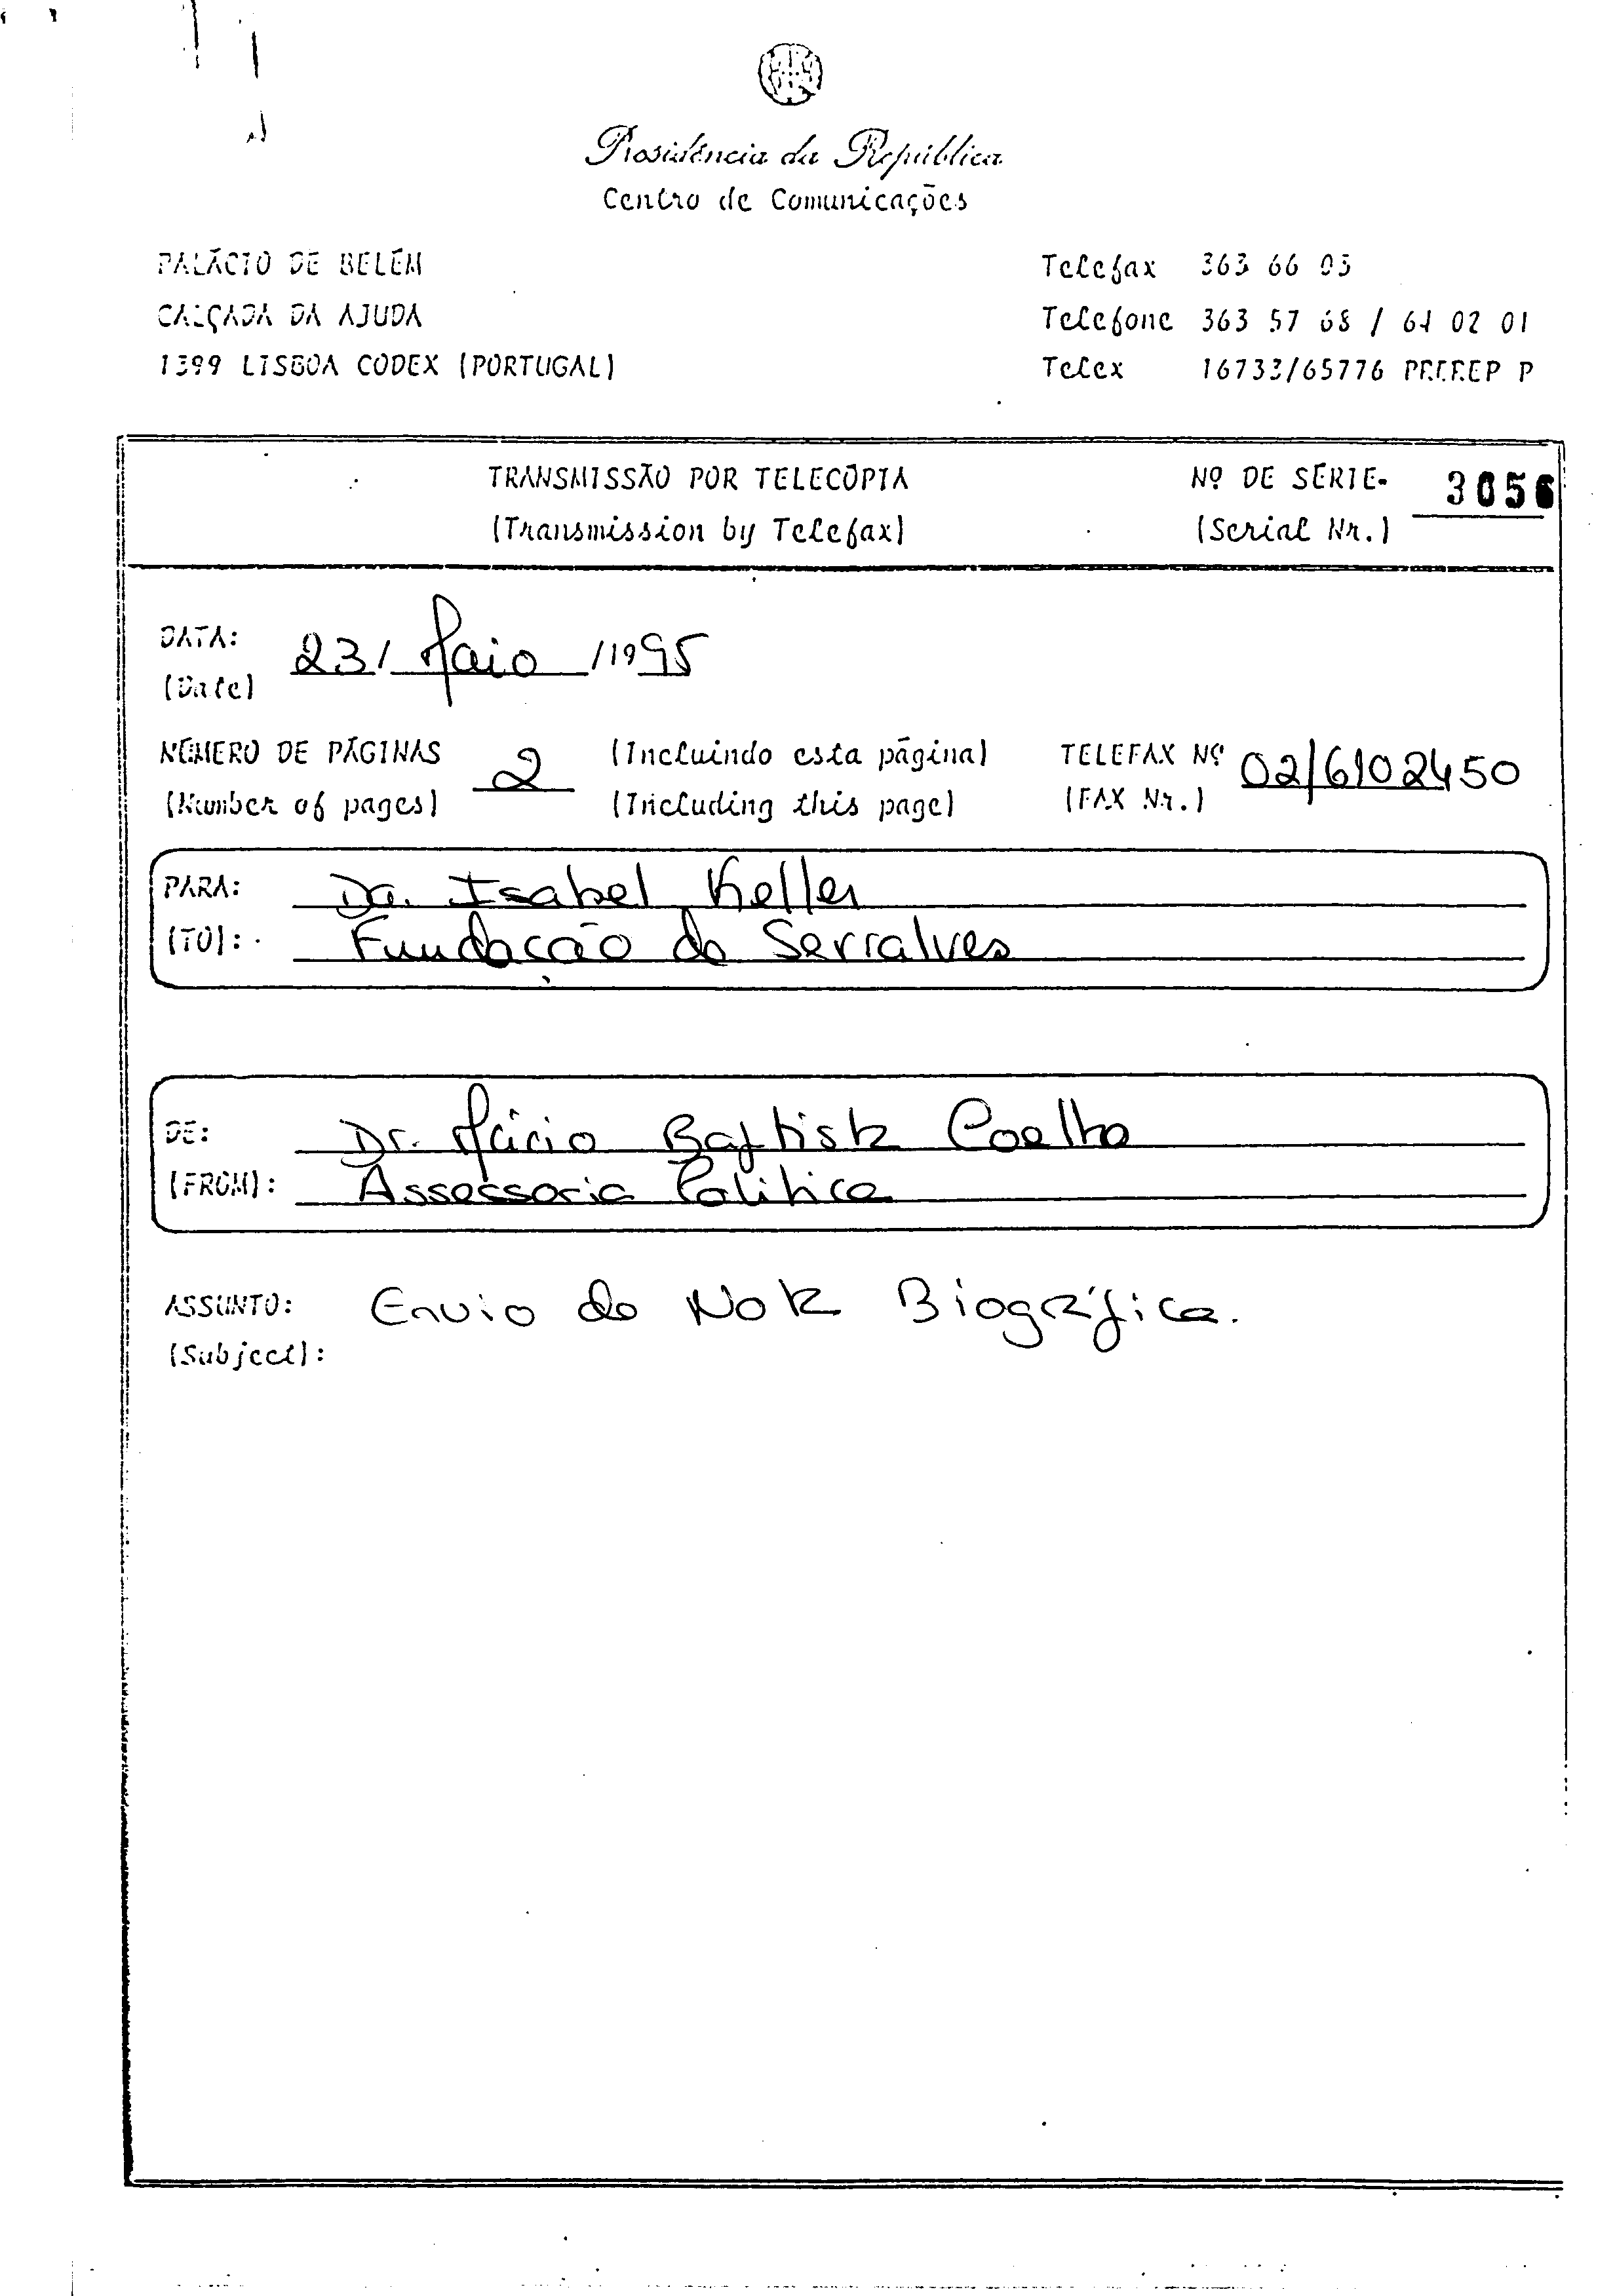 Presidência da República
Centro de Comunicações
PALÁCIO DE BELÉM
CALÇADA DA AJUDA
1399 LISBOA CODEX (PORTUGAL)
Telefax 363 66 03
Telefone 363 57 68 / 64 02 01
Telex 16733/65776 P
TRANSMISSÃO POR TELECÓPIA
(Transmission by Telefax)
Nº DE SÉRIE- 3056
(Serial Nr.)
DATA: 23/ Maio /1995
(Date)
NÚMERO DE PÁGINAS 2 (Incluindo esta página) TELEFAX Nº 02/6102450
(Number of pages) (Including this page) (FAX Nr.)
PARA: Dra. Isabel Keller
(TO): Fundação de Serralves
DE: Dr. Mário Baptista Coelho
(FROM): Assessoria Politica
ASSUNTO: Envio de Nota Biográfica.
(Subject):